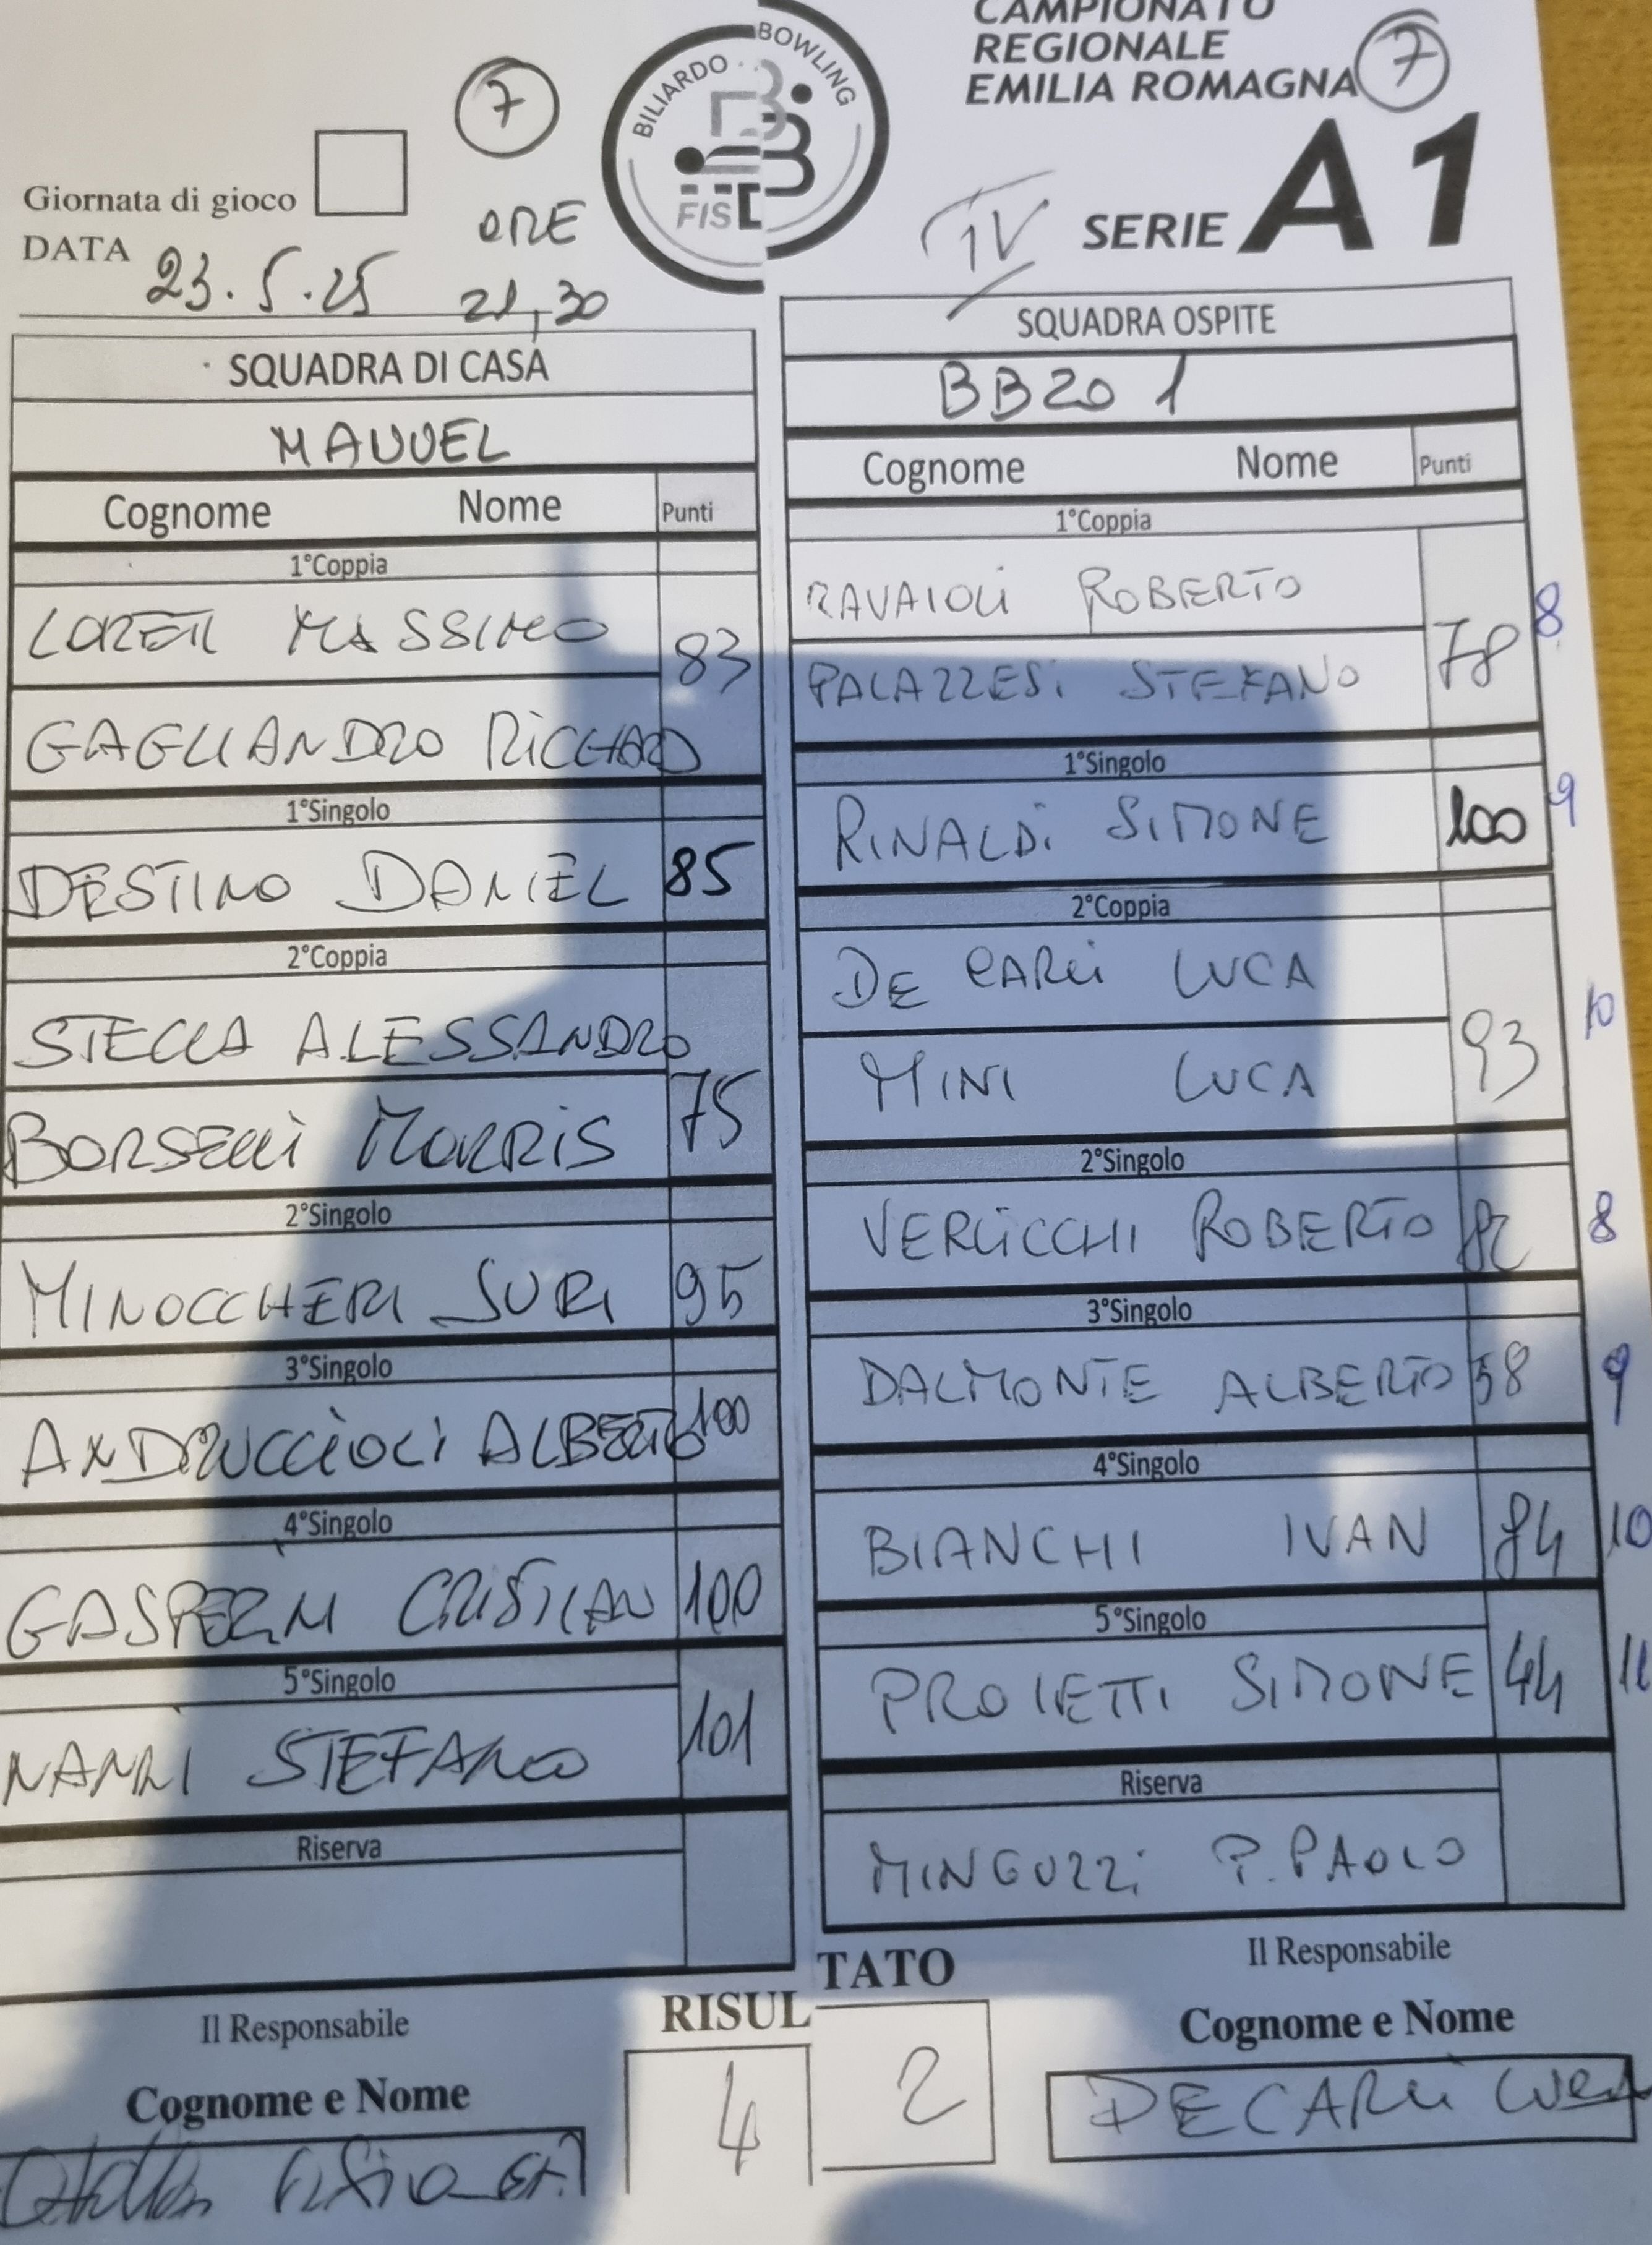 7
Giornata di gioco
DATA 23.5.25
ORE
21,30
BILIARDO BOWLING
FIS
SQUADRA DI CASA
MANUEL
Cognome Nome Punti
1°Coppia
LORETI MASSIMO
83
GAGLIANDRO RICCHARD
1°Singolo
DESTINO DANIEL 85
2°Coppia
STECCA ALESSANDRO
75
BORSELLI MORRIS
2°Singolo
MINOCCHERI SURI 95
3°Singolo
ANDRUCCIOLI ALBERTO 100
4°Singolo
GASPERINI CRISTIAN 100
5°Singolo
NANNI STEFANO 101
Riserva
Il Responsabile
Cognome e Nome
CAMPIONATO
REGIONALE
EMILIA ROMAGNA
7
IV
SERIE A1
SQUADRA OSPITE
BB20 1
Cognome Nome Punti
1°Coppia
RAVAIOLI ROBERTO
78 8
PALAZZESI STEFANO
1°Singolo
RINALDI SIMONE 100 9
2°Coppia
DE CARLI LUCA
93 10
MINI LUCA
2°Singolo
VERLICCHI ROBERTO 82 8
3°Singolo
DALMONTE ALBERTO 58 9
4°Singolo
BIANCHI IVAN 84 10
5°Singolo
PROIETTI SIMONE 44 11
Riserva
MINGUZZI P.PAOLO
RISULTATO
4 2
Il Responsabile
Cognome e Nome
DE CARLI LUCA